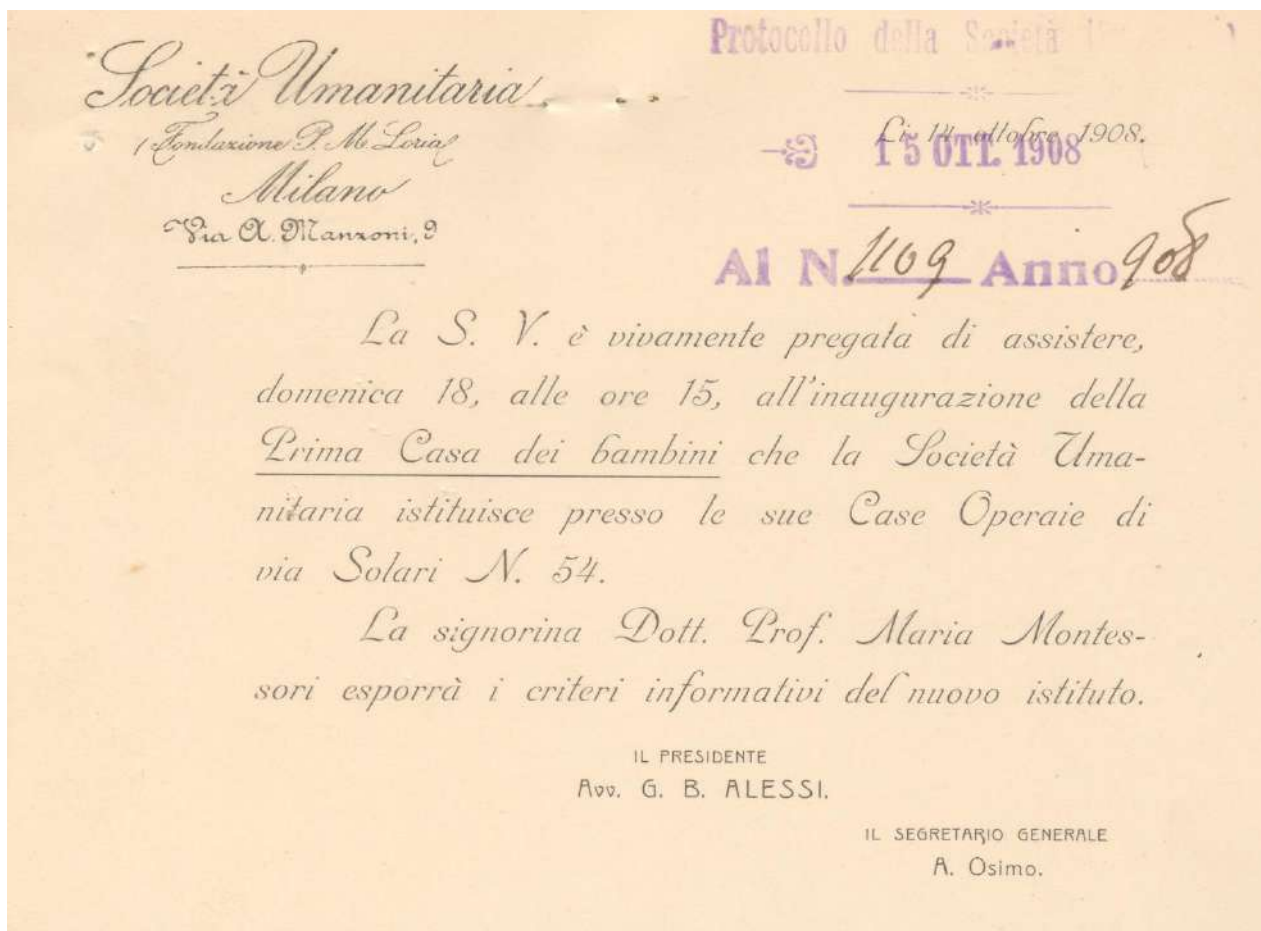 Società Umanitaria
(Fondazione P. M. Loria)
Milano
Via A. Manzoni, 9
Protocollo della Società
Li, 14 ottobre 1908.
15 OTT. 1908
Al N. 1109 Anno 908
La S. V. è vivamente pregata di assistere,
domenica 18, alle ore 15, all'inaugurazione della
Prima Casa dei bambini che la Società Uma-
nitaria istituisce presso le sue Case Operaie di
via Solari N. 54.
La signorina Dott. Prof. Maria Montes-
sori esporrà i criteri informativi del nuovo istituto.
IL PRESIDENTE
Avv. G. B. ALESSI.
IL SEGRETARIO GENERALE
A. Osimo.